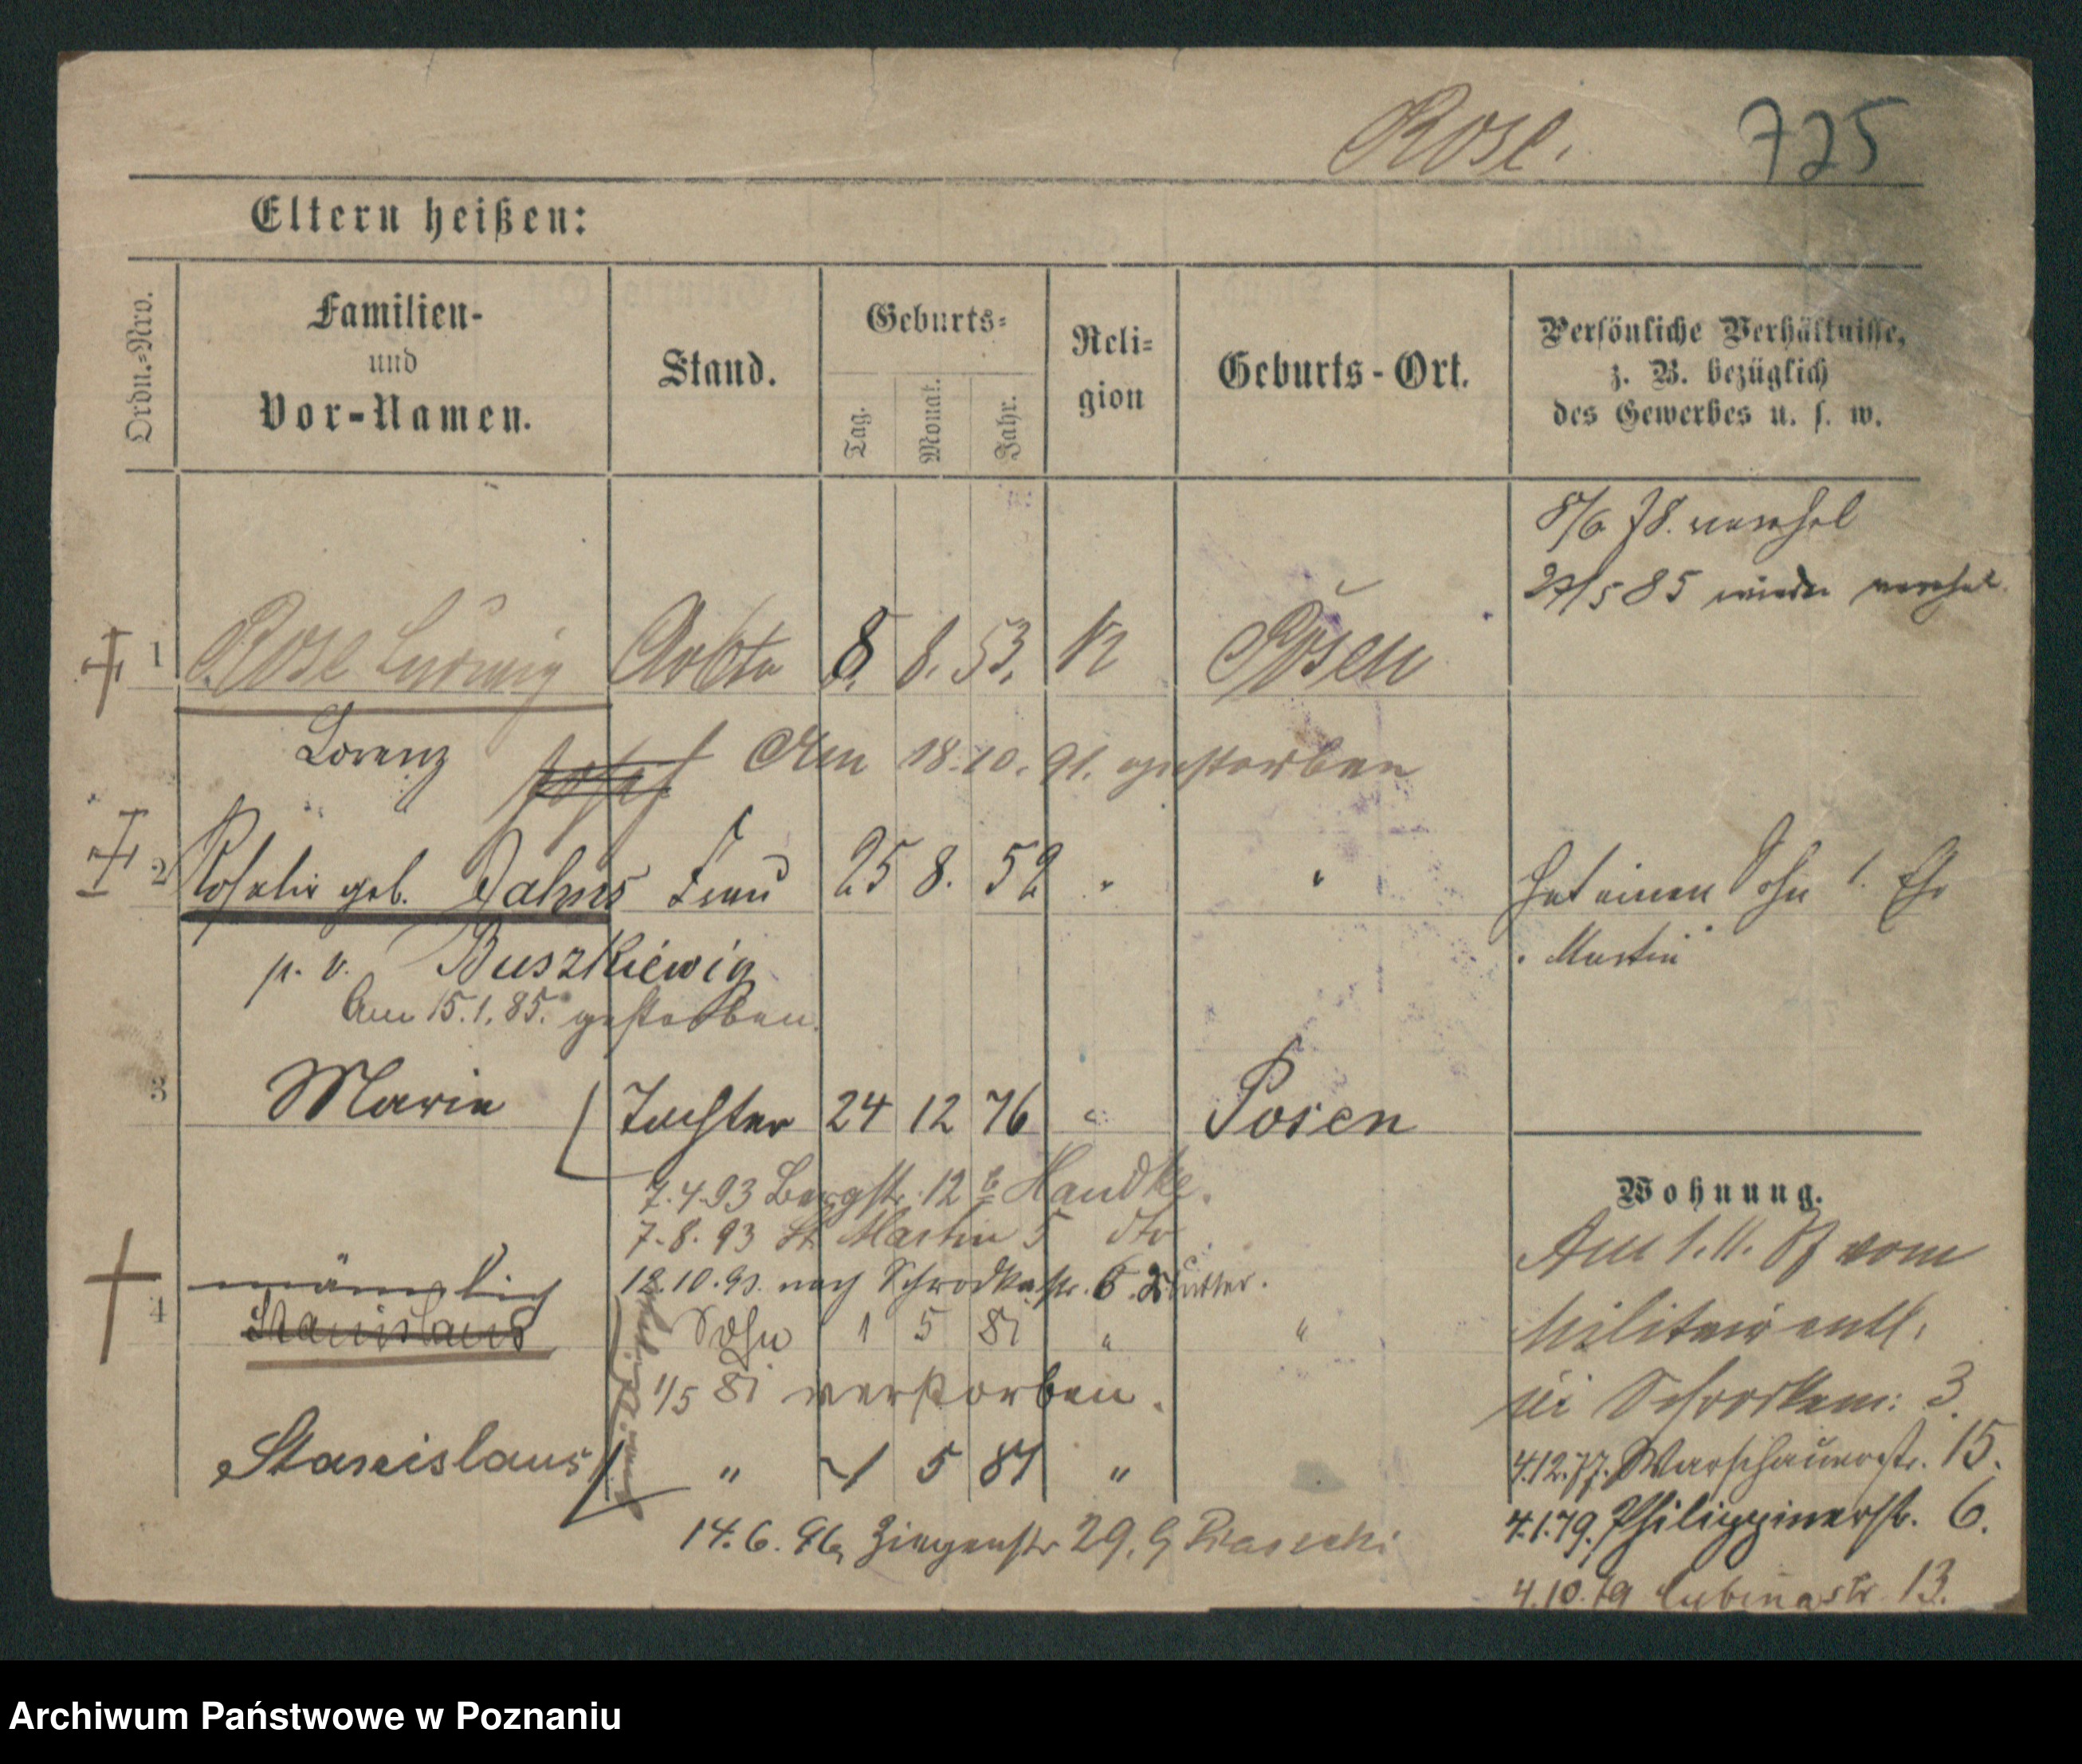 Rose.
725
Eltern heißen:
Ordn.=Nro.
Familien-
und
Vor-Namen.
Stand.
Geburts=
Tag.
Monat.
Jahr.
Reli=
gion
Geburts-Ort.
Persönliche Verhältnisse,
z. B. bezüglich
des Gewerbes u. s. w.
8/6 78. verehel
27/5 85 wieder verehel.
1 Rose Ludwig Arbtr 8. 8. 53. K Posen
Lorenz
Am 18.10.91. gestorben
2 Rosalie geb. Jahns Frau 25 8. 52 " "
Hat einen Sohn 1. Ehe
" Martin
p. v. Buszkiewicz
Am 15.1.85. gestorben.
3 Marie Tochter 24 12 76 " Posen
7.4.93 Bergstr. 12 b Handke.
7.8.93 St. Martin 5 dto
12.10.93. nach Schrodkastr. 6.
4 männlich
Stanislaus
Sohn 1 5 81 " "
1/5 81 verstorben.
Stanislaus " 1 5 81 "
14.6.96 Ziegenstr 29.
Wohnung.
Am 1.11. 77 vom
Militair entl.
Schrodkam: 3.
4.12.77. Warschauerstr. 15.
4.1.79. Philippinerstr. 6.
4.10.79 13.
Archiwum Państwowe w Poznaniu